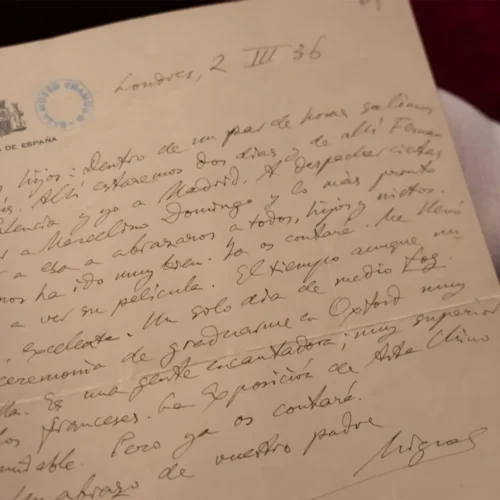 Londres, 2 III 36
DE ESPAÑA
hijos: Dentro de un par de horas salimos
Allí estaremos dos días y de allí Fernan
lencia y yo a Madrid. A despachar ciertas
a Marcelino Domingo y lo más pronto
a esa a abrazaros a todos, hijos y nietos.
nos ha ido muy bien. Ya os contaré. Me llevó
a ver su película. El tiempo aunque
, excelente. Un solo día de medio fog.
ceremonia de graduarme en Oxford muy
lla. Es una gente encantadora; muy superior
los franceses. La Exposición de Arte Chino
mdable. Pero ya os contaré.
Un abrazo de vuestro padre
Miguel